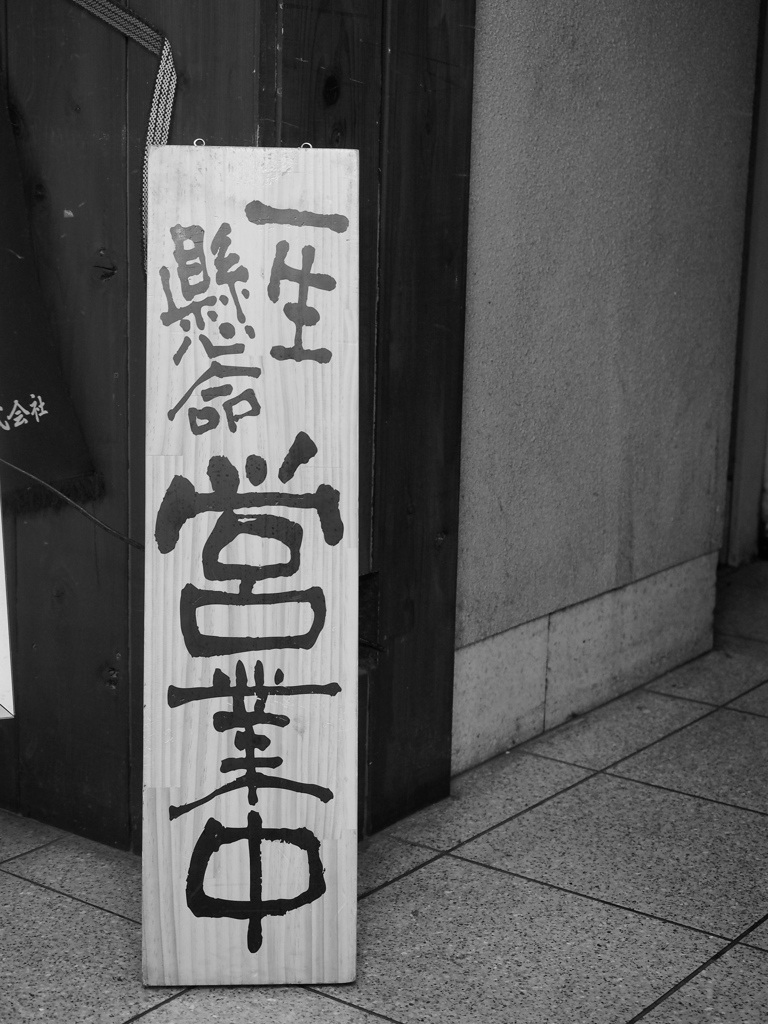 一生
懸命
営業中
式会社